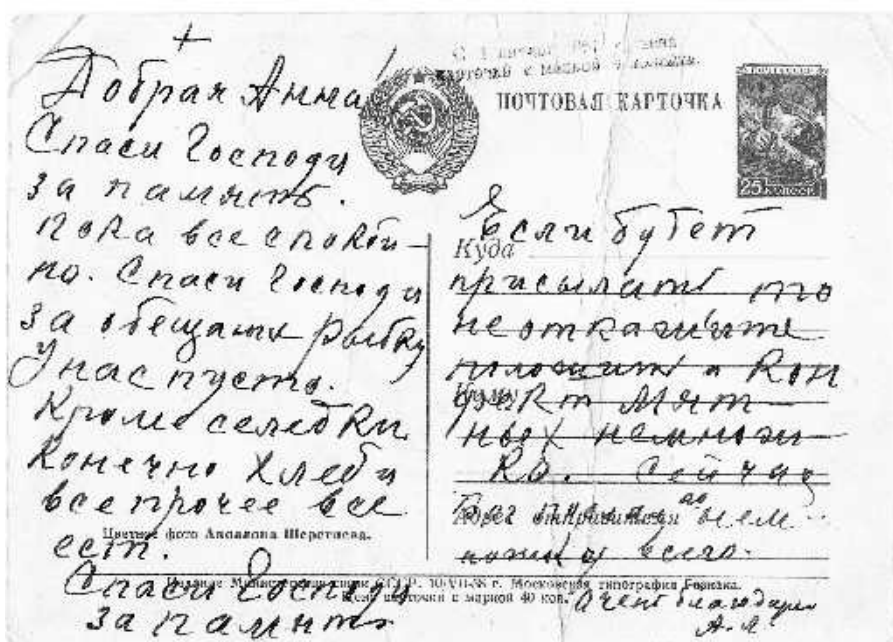 +
Добрая Анна!
Спаси Господи
за памятъ.
Пока все спокой-
но. Спаси Господи
за обещаных рыбку
У нас пусто.
Кроме селедки
конечно хлеби
все прочее все
ест.
Спаси Господи
за памят
карточкой с маркой
ПОЧТОВАЯ КАРТОЧКА
25 КОПЕЕК
Если будет
Куда
присылат то
не откажите
положит и кон
Кому
фект мят-
ных немнож-
ко. Сейчас
Адрес отправителя
нем
ножку всего.
Очент благодарю
А.Л.
Цветное фото Аполлона Шерстнева.
Издание Министерства связи СССР. 10/VII-58 г. Московская типография Гознака.
Цена карточки с маркой 40 коп.